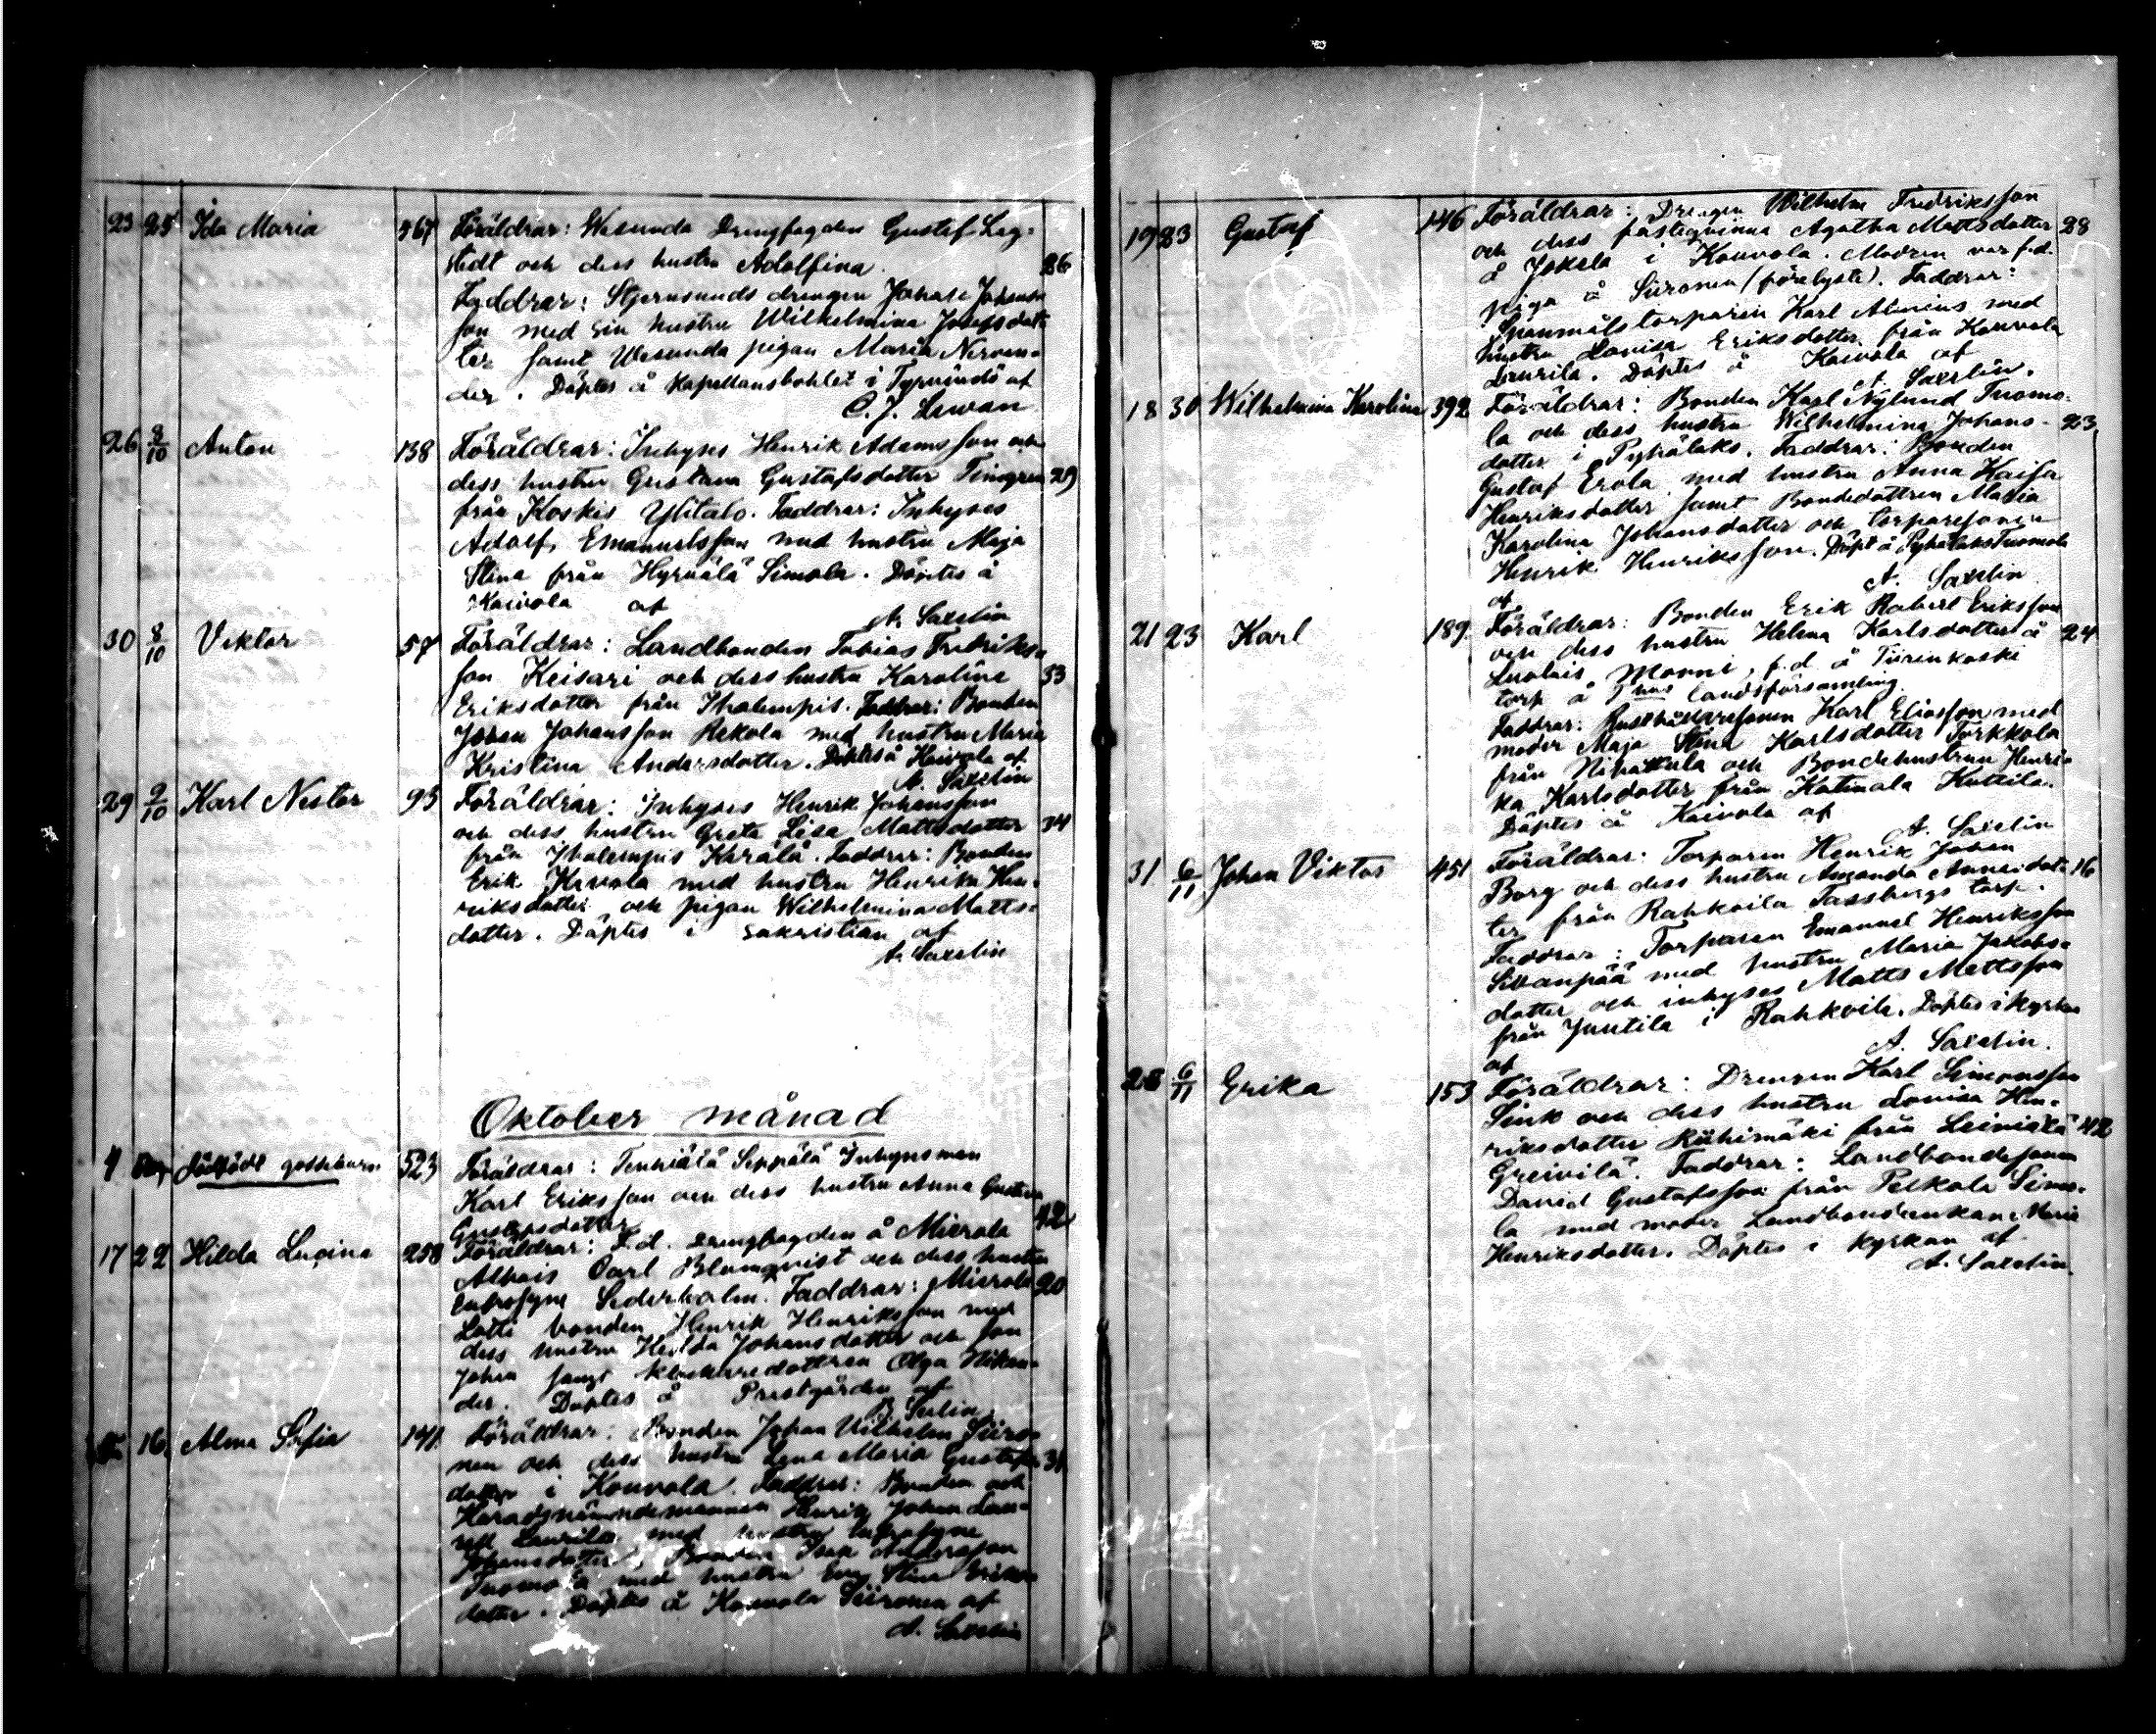 23 25 Ida Maria 467 Föräldrar: Wesunda Drengfogden Gustaf Lag-
stedt och dess hustru Adolfina. 26
Faddrar: Stjernsunds drengen Johan Johans
son med sin hustru Wilhelmina Josefsdot-
ter samt Wesunda pigan Maria Nerven-
der. Döptes å Kapellansbohlet i Tyrvändö af
C. J. Lewan
26 8/10 Anton 138 Föräldrar: Inhyses Henrik Adamsson och
dess hustru Gustava Gustafsdotter Finngren 29
från Koskis Ylitalo. Faddrar: Inhyses
Adolf Emanuelsson med hustru Maja
Stina från Hyrvälä Simola. Döptes å
Kaivola af
A. Saxelin
30 8/10 Viktor 57 Föräldrar: Landbonden Tobias Fredriks-
son Keisari och dess hustru Karolina 33
Eriksdotter från Ihalempis. Faddrar: Bonden
Johan Johansson Rekola med hustru Maria
Kristina Andersdotter. Döptes å Kaivola af
A. Saxelin
29 9/10 Karl Nestor 93 Föräldrar: Inhyses Henrik Johansson
och dess hustru Greta Lisa Mattsdotter 34
från Ihalempis Kerälä. Faddrar: Bonden
Erik Kaivola med hustru Henrika Hen-
riksdotter och pigan Wilhelmina Matts-
dotter. Döptes i sakristian af
A. Saxelin
Oktober månad
4 Dödfödt gossebarn 523 Föräldrar: Tenhiälä Seppälä Inhysman
Karl Eriksson och dess hustru Anna Gustava
Gustafsdotter 42
17 22 Hilda Lucina 258 Föräldrar: F.d. drengfogden å Mierola
Alhais Carl Blomqvist och dess hustru
Eufrosyne Sederholm. Faddrar: Mierola 20
Lotti bonden Henrik Henriksson med
dess hustru Hilda Johansdotter och son
Johan samt klockaredottren Olga Nikan-
der. Döptes å Prestgården af
B. Serlin
16 Alma Sofia 141 Föräldrar: Bonden Johan Vilhelm Siiro-
nen och dess hustru Lena Maria Gustafs- 31
dotter i Kouvola. Faddrar: Bonden och
Häradsnämndemannen Henrik Johan Lau-
rell Laurila med hustru Eufrosyne
Johansdotter, Bonden Isak Andersson
Tuomola med hustru Eva Stina Eriks-
dotter. Döptes å Kouvola Siironen af
A. Saxelin
19 23 Gustaf 146 Föräldrar: Drengen Wilhelm Fredriksson
och dess fästeqvinna Agatha Mattsdotter 28
å Jokela i Kouvola. Modren var f.d.
piga å Siironen (förelyste). Faddrar:
Spanmålstorparen Karl Alenius med
hustru Lovisa Eriksdotter från Kouvola
Laurila. Döptes å Kaivola af
A. Saxelin.
18 30 Wilhelmina Karolina 392 Föräldrar: Bonden Karl Nylund Tuomo-
la och dess hustru Wilhelmina Johans- 23
dotter i Pyhälaks. Faddrar: Bonden
Gustaf Erola med hustru Anna Kaisa
Henriksdotter samt Bondedottren Maria
Karolina Johansdotter och torparesonen
Henrik Henriksson. Döpt å Pyhälaks Tuomola
af A. Saxelin
21 23 Karl 189 Föräldrar: Bonden Erik Robert Eriksson
och dess hustru Helena Karlsdotter å 24
Luolais Monni, f.d. å Tiirinkoski
torp å Thus landsförsamling.
Faddrar: Rusthållaresonen Karl Eliasson med
moder Maja Stina Karlsdotter Torkkola
från Nihattula och Bondehustrun Henri-
ka Karlsdotter från Katinala Kuttila.
Döptes å Kaivola af
A. Saxelin
31 6/11 Johan Viktor 451 Föräldrar: Torparen Henrik Johan
Borg och dess hustru Amanda Antonidot- 16
ter från Rahkoila Tassbergs torp.
Faddrar: Torparen Emanuel Henriksson
Sivanpää med hustru Maria Jakobs-
dotter och inhyses Matts Mattsson
från Juutila i Rahkoila. Döptes i kyrkan
af A. Saxelin.
28 6/11 Erika 153 Föräldrar: Drengen Karl Simonsson
Sink och dess hustru Lovisa Hen-
riksdotter Riihimäki från Leiniälä 42
Greivilä. Faddrar: Landbondesonen
David Gustafsson från Pelkola Simo-
la med moder Landbondeenkan Maria
Henriksdotter. Döptes i kyrkan af
A. Saxelin.